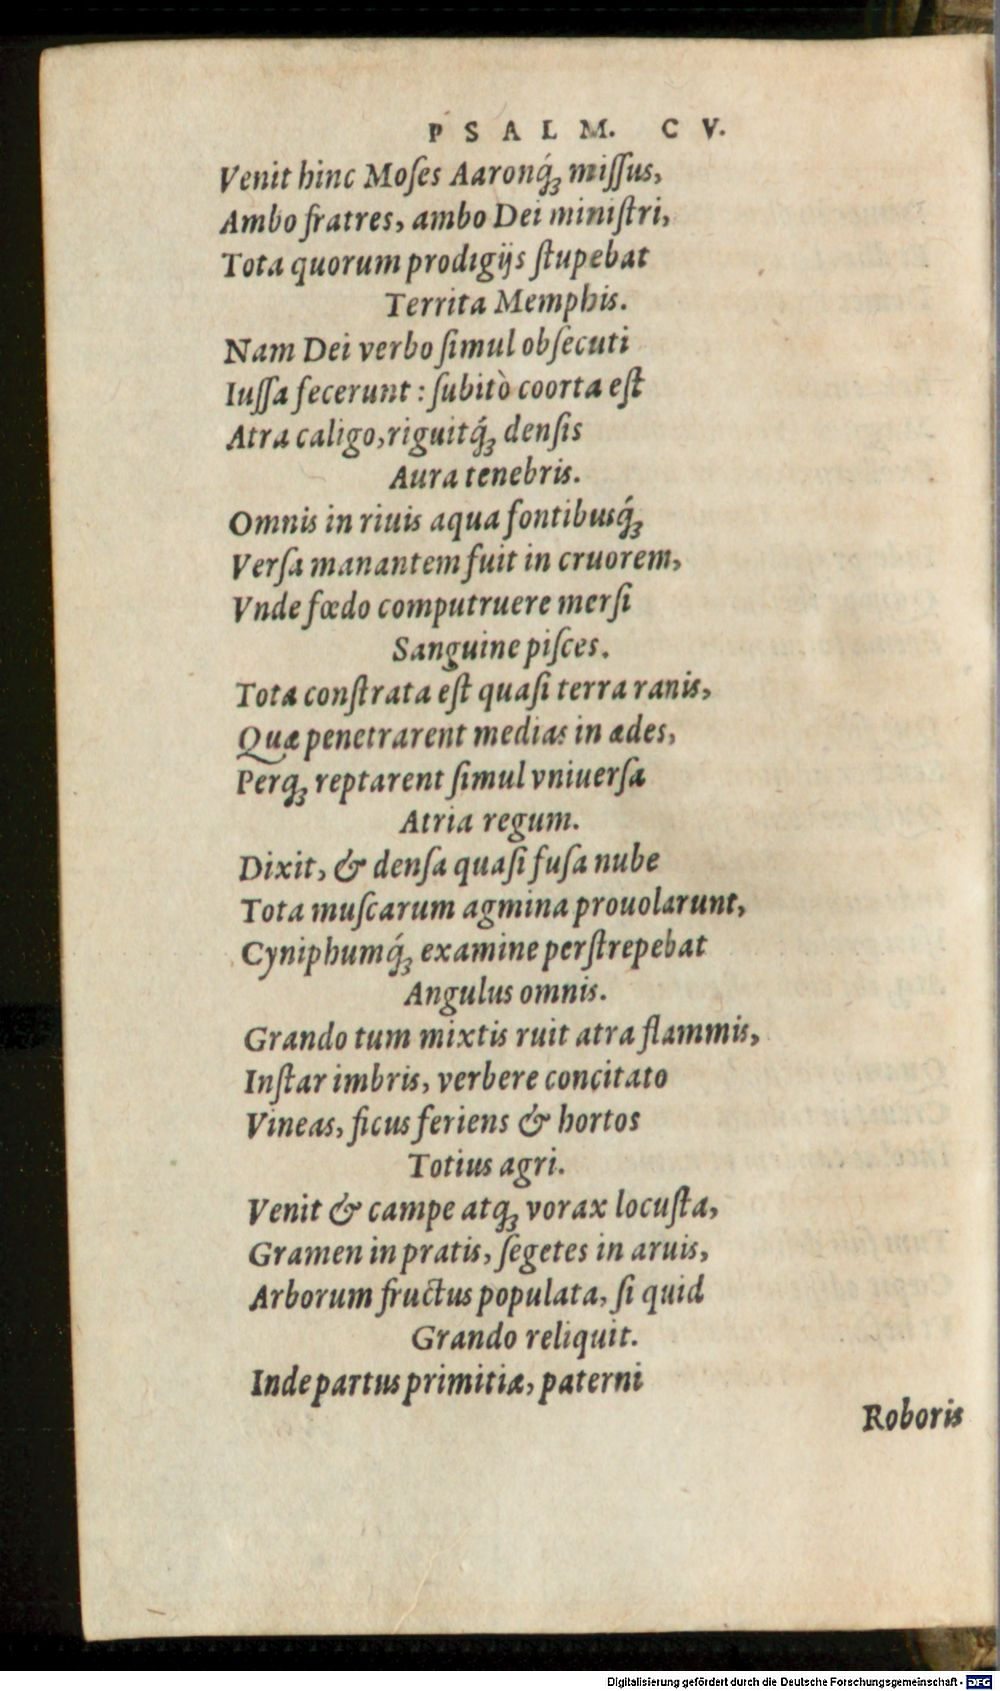 PSALM. CV.
Venit hinc Moſes Aaronq́ꝫ miſſus,
Ambo fratres, ambo Dei miniſtri,
Tota quorum prodigijs ſtupebat
Territa Memphis.
Nam Dei verbo ſimul obſecuti
Iuſſa fecerunt: ſubitò coorta eſt
Atra caligo, riguitq́ꝫ denſis
Aura tenebris.
Omnis in riuis aqua fontibusq́ꝫ
Verſa manantem fuit in cruorem,
Vnde fœdo computruere merſi
Sanguine piſces.
Tota conſtrata eſt quaſi terra ranis,
Quæ penetrarent medias in ædes,
Perqꝫ reptarent ſimul vniuerſa
Atria regum.
Dixit, & denſa quaſi fuſa nube
Tota muſcarum agmina prouolarunt,
Cyniphumq́ꝫ examine perſtrepebat
Angulus omnis.
Grando tum mixtis ruit atra flammis,
Inſtar imbris, verbere concitato
Vineas, ficus feriens & hortos
Totius agri.
Venit & campe atqꝫ vorax locuſta,
Gramen in pratis, ſegetes in aruis,
Arborum fructus populata, ſi quid
Grando reliquit.
Inde partus primitiæ, paterni
Roboris
Digitalisierung gefördert durch die Deutsche Forschungsgemeinschaft - DFG